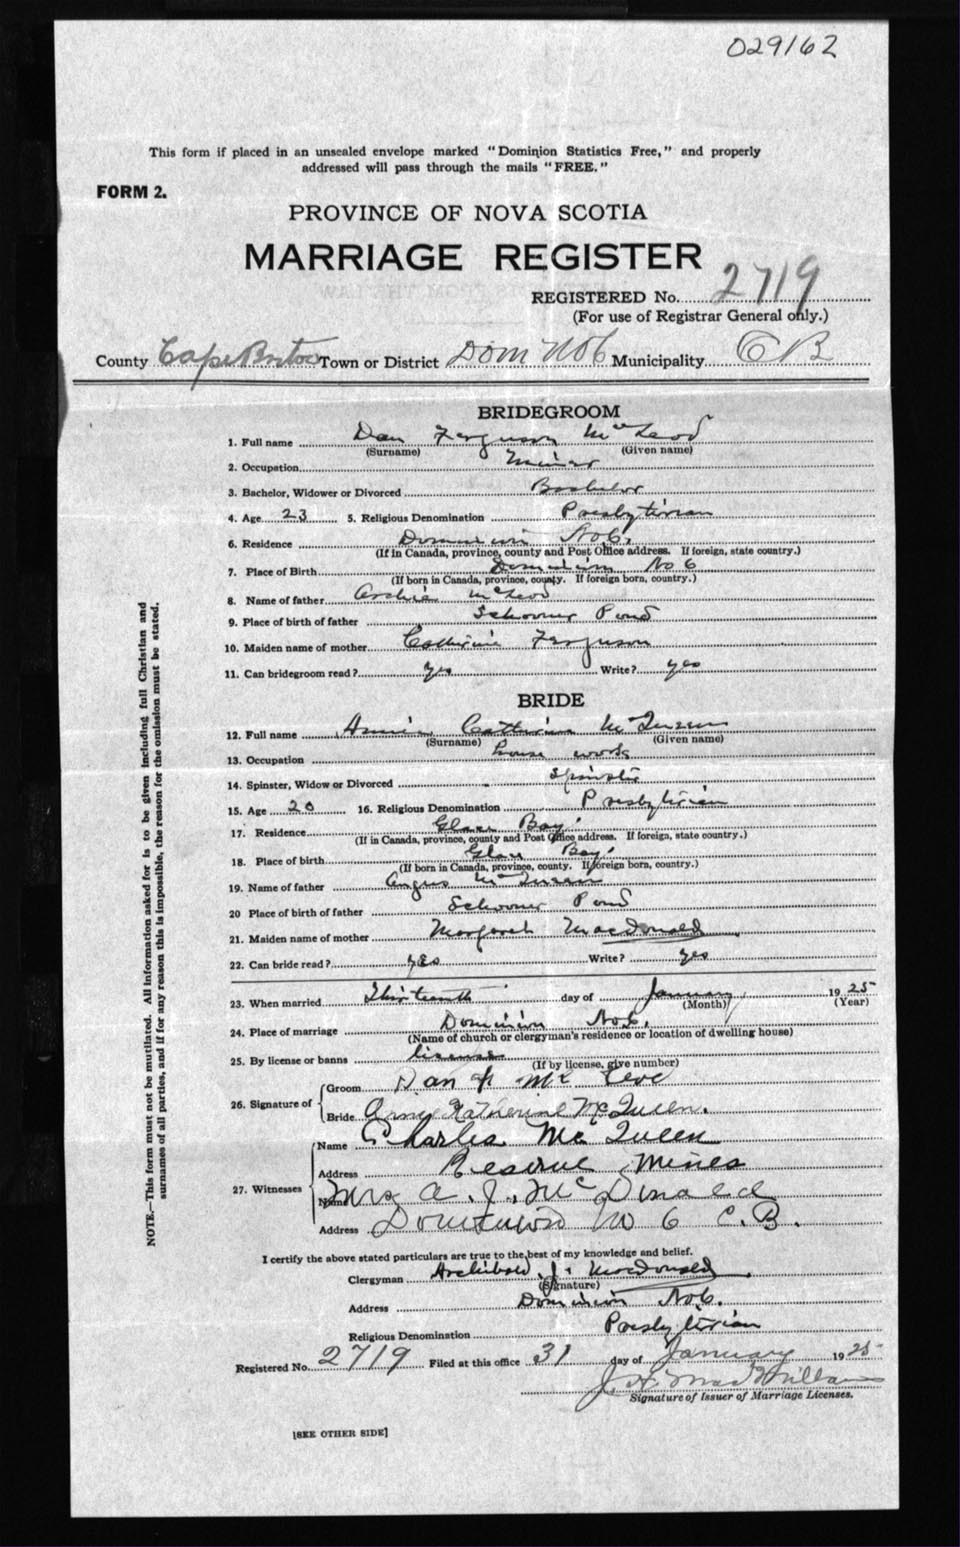 029162
This form if placed in an unsealed envelope marked "Dominion Statistics Free," and properly
addressed will pass through the mails "FREE."
FORM 2.
PROVINCE OF NOVA SCOTIA
MARRIAGE REGISTER
REGISTERED No. 2719
(For use of Registrar General only.)
County Cape Breton Town or District Dom No 6 Municipality C B
BRIDEGROOM
1. Full name Dan Ferguson McLeod
(Surname) (Given name)
2. Occupation Miner
3. Bachelor, Widower or Divorced Bachelor
4. Age 23 5. Religious Denomination Presbyterian
6. Residence Dominion No 6.
(If in Canada, province, county and Post Office address. If foreign, state country.)
7. Place of Birth Dominion No 6
(If born in Canada, province, county. If foreign born, country.)
8. Name of father Archie McLeod
9. Place of birth of father Schooner Pond
10. Maiden name of mother Catherine Ferguson
11. Can bridegroom read? yes Write? yes
BRIDE
12. Full name Annie Catherine McQueen
(Surname) (Given name)
13. Occupation house work
14. Spinster, Widow or Divorced Spinster
15. Age 20 16. Religious Denomination Presbyterian
17. Residence Glace Bay.
(If in Canada, province, county and Post Office address. If foreign, state country.)
18. Place of birth Glace Bay.
(If born in Canada, province, county. If foreign born, country.)
19. Name of father Angus McQueen
20 Place of birth of father Schooner Pond
21. Maiden name of mother Margaret Macdonald
22. Can bride read? yes Write? yes
23. When married Thirteenth day of January 1925
(Month) (Year)
24. Place of marriage Dominion No 6.
(Name of church or clergyman's residence or location of dwelling house)
25. By license or banns license
(If by license, give number)
26. Signature of
Groom Dan F Mc
Bride Katherine McQueen.
27. Witnesses
Name Charles McQueen
Address Reserve Mines
Name Mrs A. J. McDonald
Address Dominion No 6 C.B.
I certify the above stated particulars are true to the best of my knowledge and belief.
Clergyman Archibald J. Macdonald
(Signature)
Address Dominion No 6.
Religious Denomination Presbyterian
Registered No. 2719 Filed at this office 31 day of January 1925
Signature of Issuer of Marriage Licenses.
[SEE OTHER SIDE]
NOTE.—This form must not be mutilated. All information asked for is to be given including full Christian and
surnames of all parties, and if for any reason this is impossible, the reason for the omission must be stated.